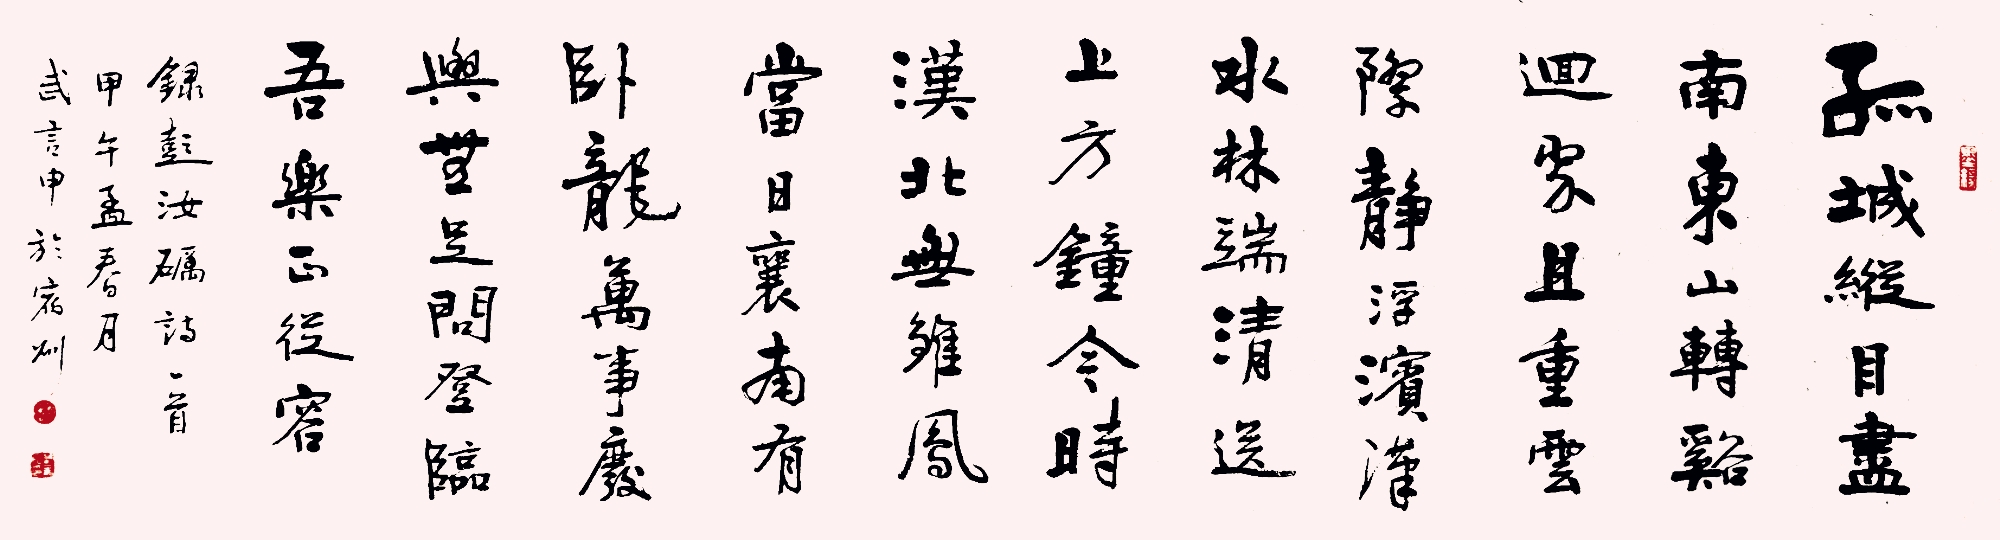 孤城縱目盡
南東山轉谿
迴家且重雲
際靜浮濱漢
水林端清送
上方鐘今時
漢北無雛鳳
當日襄南有
臥龍萬事廢
興無足問登臨
吾樂正從容
錄彭汝礪詩一首
甲午孟春月
武言申於宿州